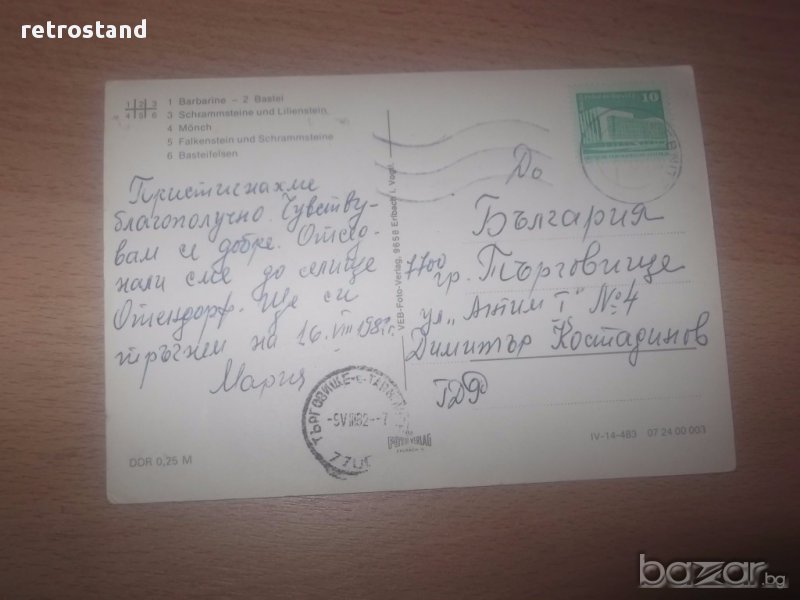 retrostand
1 2 3
4 5 6
1 Barbarine – 2 Bastei
3 Schrammsteine und Lilienstein
4 Mönch
5 Falkenstein und Schrammsteine
6 Basteifelsen
Пристигнахме
благополучно. Чувству-
вам се добре. Отсед-
нали сме до селище
Отендорф. Ще си
тръгнем на 16.VIII 1982г.
Мария
VEB-Foto-Verlag, 9658 Erlbach i. Vogtl.
10
До
България
7700 гр. Търговище
ул. "Антим I", №4
Димитър Костадинов
ГДР
ТЪРГОВИЩЕ
DDR 0,25 M
FOTO VERLAG
IV-14-483 07 24 00 003
bazar.bg